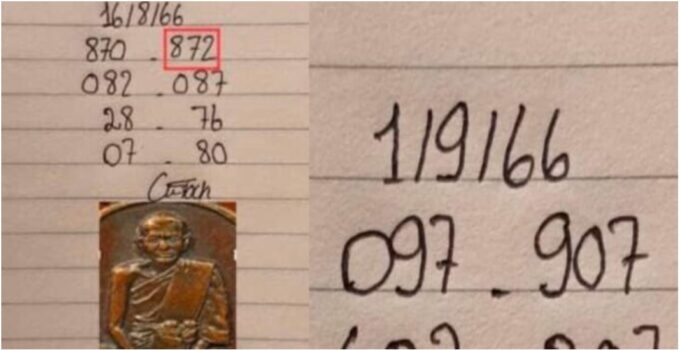 16/8/66
870 - 872
082 - 087
28 - 76
07 - 80
1/9/66
097 - 907